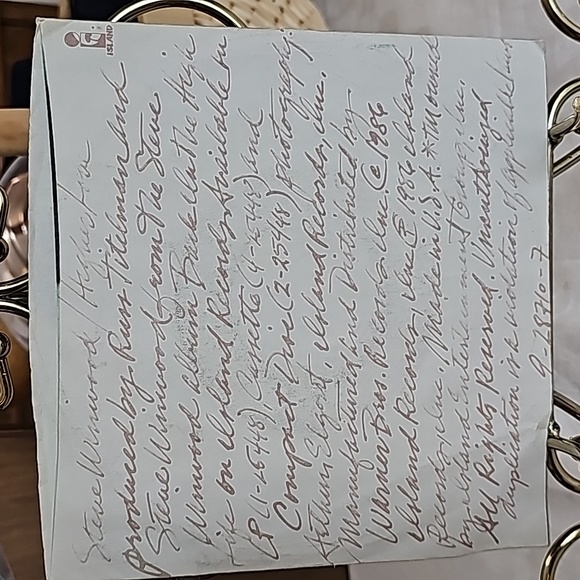 ISLAND
Steve Winwood / Higher Love
produced by Russ Titelman and
Steve Winwood, from the Steve
Winwood album Back in the High
Life on Island Records. Available on
LP (1-25448), Cassette (4-25448) and
Compact Disc (2-25448). photography:
Arthur Elgort. Island Records, Inc.
Manufactured and Distributed by
Warner Bros. Records Inc. © 1986
Island Records, Inc. ℗ 1986 Island
Records, Inc. Made in U.S.A. *TM owned
by Island Entertainment Group, Inc.
All Rights Reserved. Unauthorized
duplication is a violation of applicable laws.
9-28710-7